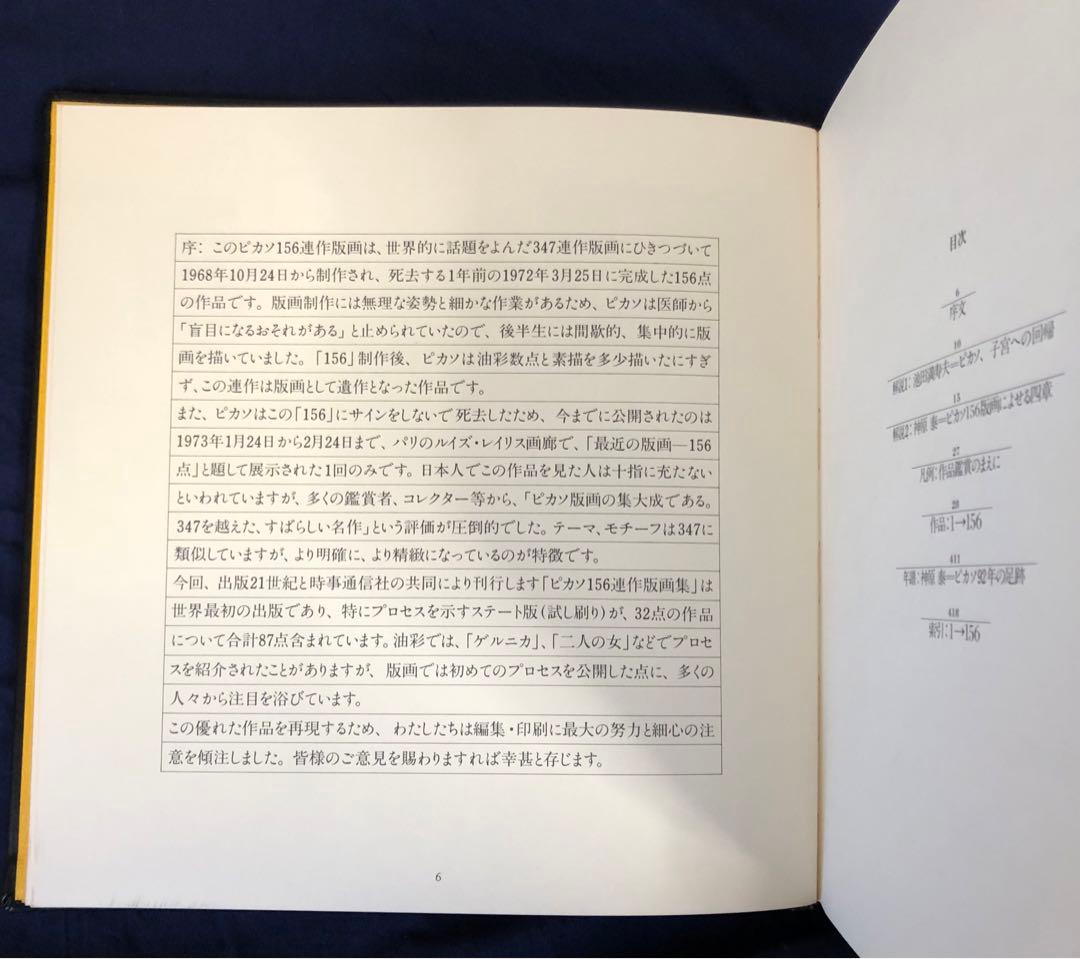 序：このピカソ156連作版画は、世界的に話題をよんだ347連作版画にひきつづいて
1968年10月24日から制作され、死去する1年前の1972年3月25日に完成した156点
の作品です。版画制作には無理な姿勢と細かな作業があるため、ピカソは医師から
「盲目になるおそれがある」と止められていたので、後半生には間歇的、集中的に版
画を描いていました。「156」制作後、ピカソは油彩数点と素描を多少描いたにすぎ
ず、この連作は版画として遺作となった作品です。
また、ピカソはこの「156」にサインをしないで死去したため、今までに公開されたのは
1973年1月24日から2月24日まで、パリのルイズ・レイリス画廊で、「最近の版画―156
点」と題して展示された1回のみです。日本人でこの作品を見た人は十指に充たない
といわれていますが、多くの鑑賞者、コレクター等から、「ピカソ版画の集大成である。
347を越えた、すばらしい名作」という評価が圧倒的でした。テーマ、モチーフは347に
類似していますが、より明確に、より精緻になっているのが特徴です。
今回、出版21世紀と時事通信社の共同により刊行します「ピカソ156連作版画集」は
世界最初の出版であり、特にプロセスを示すステート版（試し刷り）が、32点の作品
について合計87点含まれています。油彩では、「ゲルニカ」、「二人の女」などでプロセ
スを紹介されたことがありますが、版画では初めてのプロセスを公開した点に、多くの
人々から注目を浴びています。
この優れた作品を再現するため、わたしたちは編集・印刷に最大の努力と細心の注
意を傾注しました。皆様のご意見を賜わりますれば幸甚と存じます。
6
目次
6
序文
10
解説1：池田満寿夫＝ピカソ、子宮への回帰
15
解説2：神原 泰＝ピカソ156版画によせる四章
27
凡例：作品鑑賞のまえに
28
作品：1→156
411
年譜：神原 泰＝ピカソ92年の足跡
418
索引：1→156